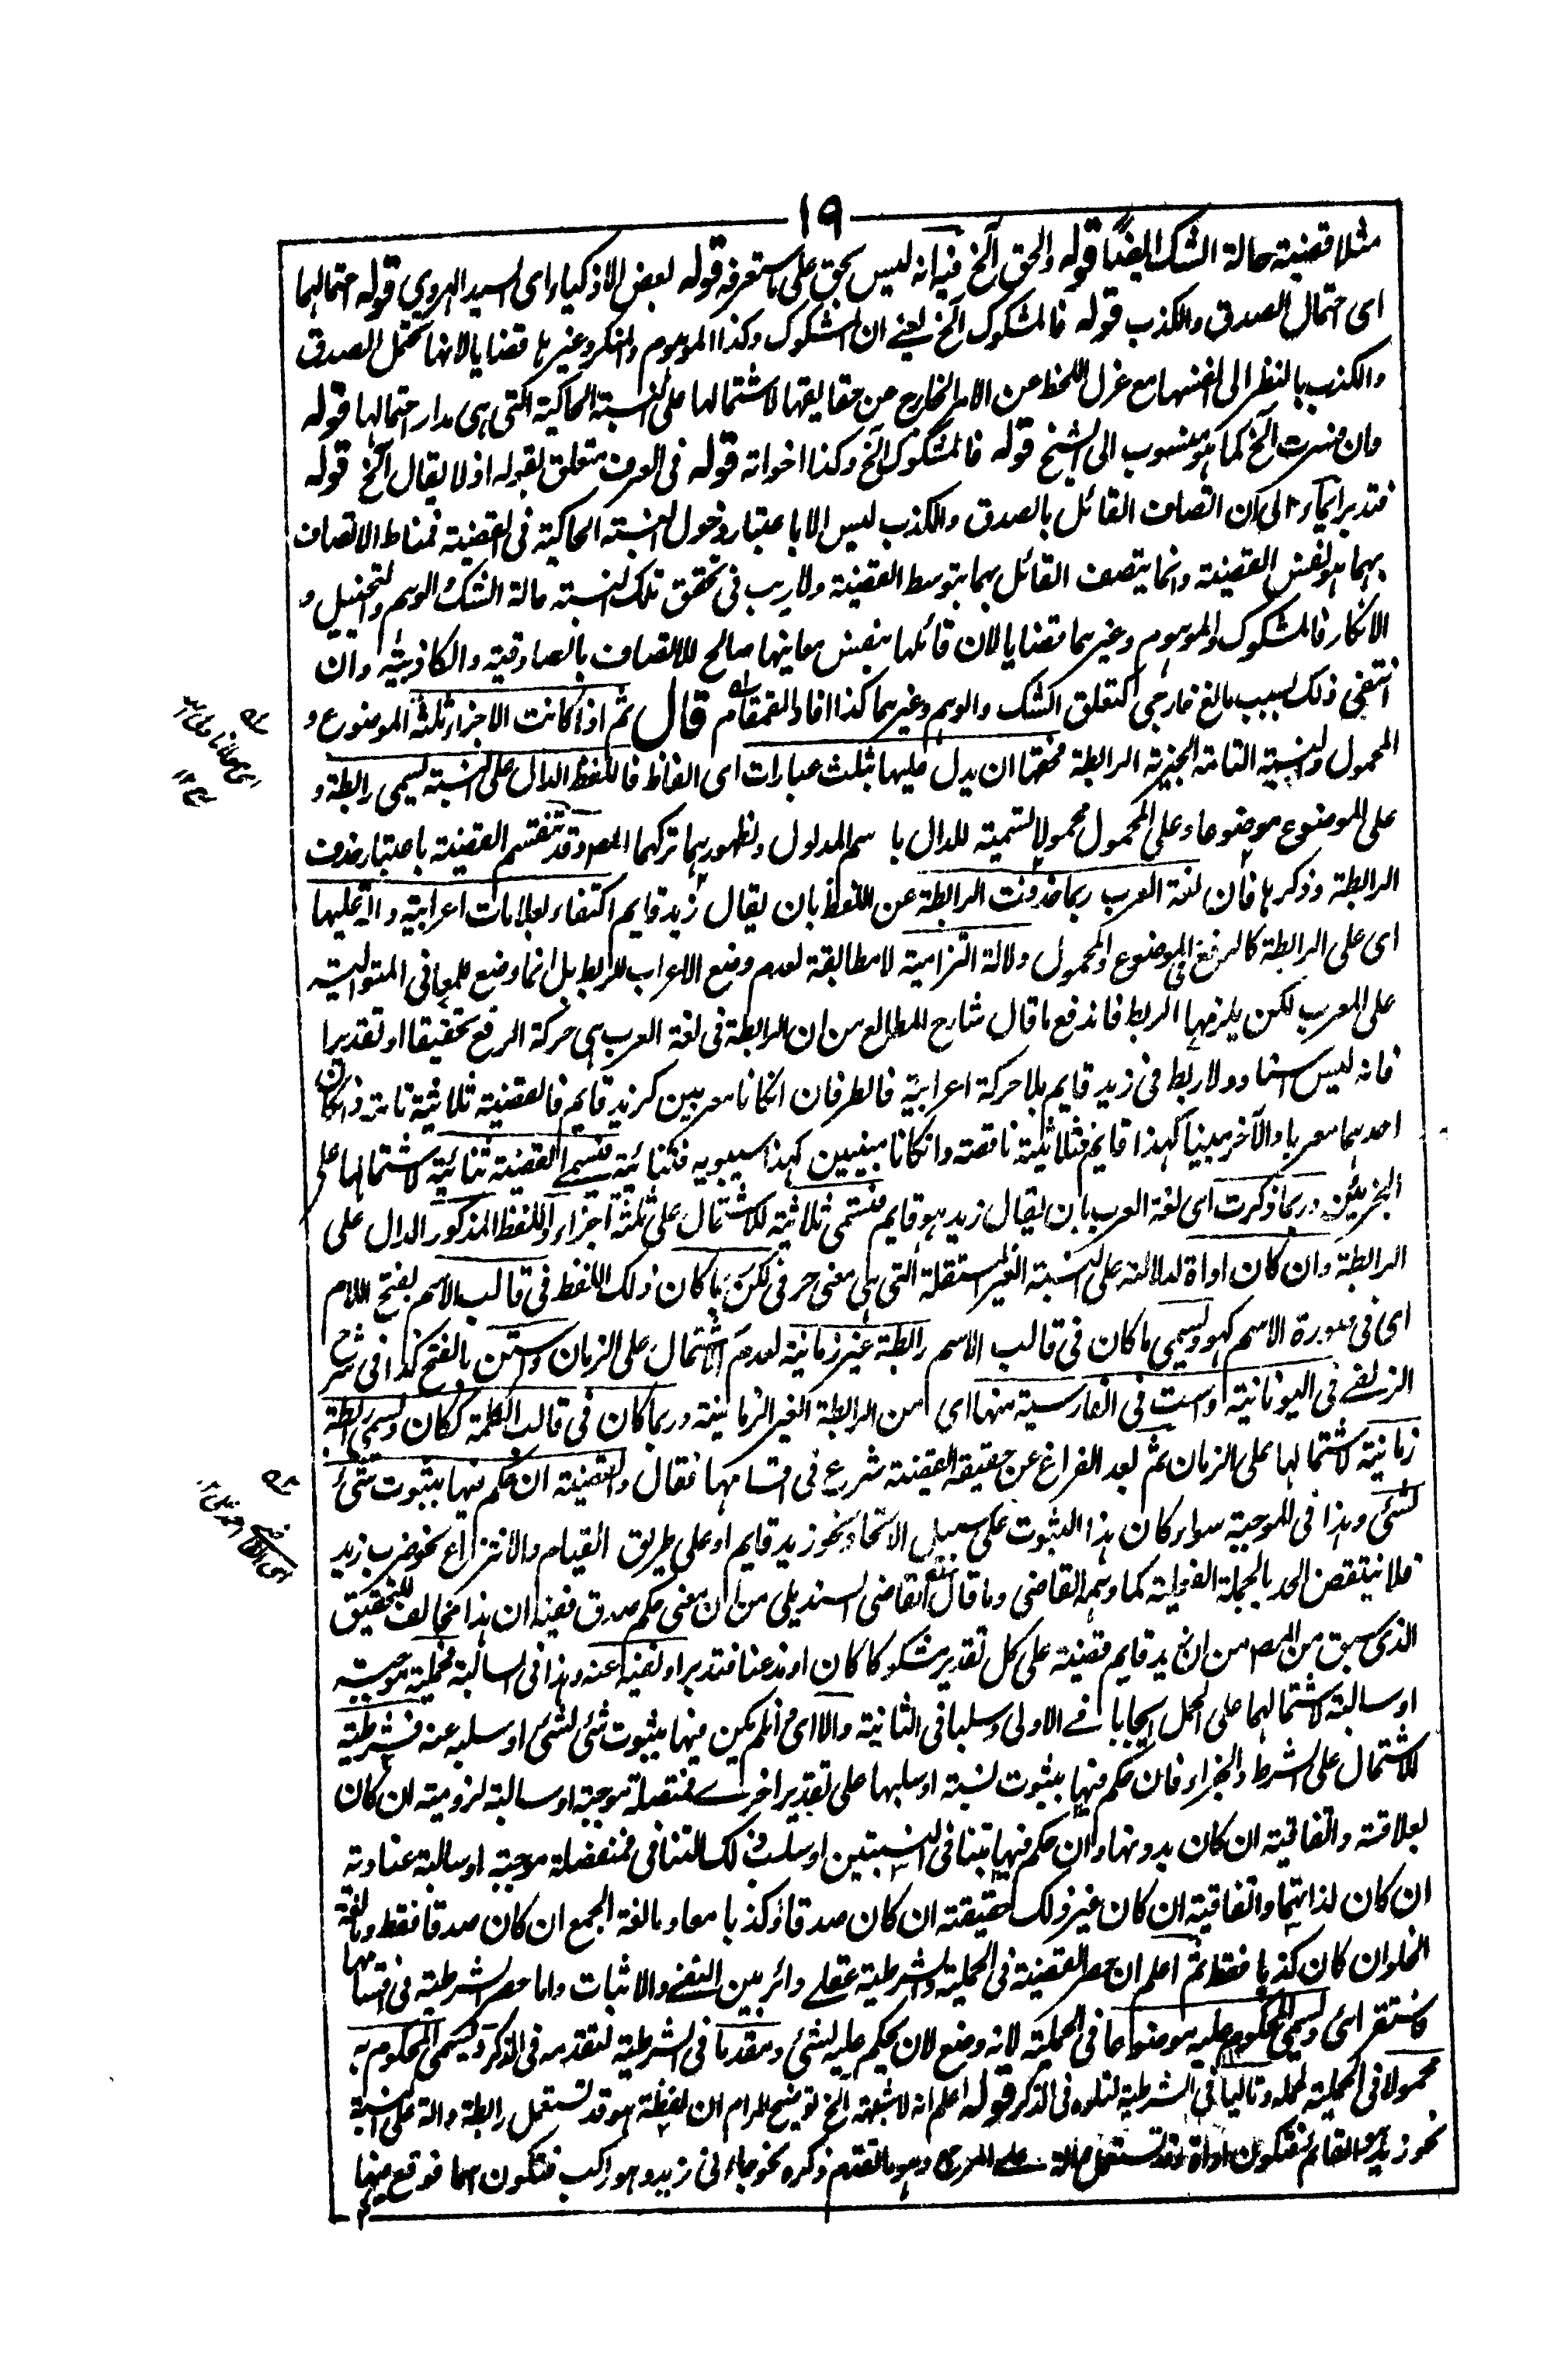 ١٩
مثلا قضية حالة الشك ايضا قوله والحق آلخ فيه انه ليس بحق على ما ستعرفه قوله لبعض الاذكياء اى السيد الهروي قوله احتمالهما
اى احتمال الصدق والكذب قوله فالمشكوك آلخ يعنے ان المشكوك وكذا الموهوم والمنكر وغيرها قضايا لانها تحتمل الصدق
والكذب بالنظر الى انفسها مع عزل اللحظ عن الامر الخارج عن حقايقها لاشتمالها على النسبة الحاكية التى هى مدار احتمالها قوله
وان فسرت آلخ كما هو منسوب الى الشيخ قوله فالمشكوك آلخ وكذا اخواته قوله فى العرف متعلق بقوله اذ لا يقال آلخ قوله
فتدبر ايماء الى ان اتصاف القائل بالصدق والكذب ليس الا باعتبار دخول النسبة الحاكية فى القضية فمناط الاتصاف
بهما هو نفس القضية وانما يتصف القائل بهما بتوسط القضية ولا ريب فى تحقق تلك النسبة حالة الشك والوهم والتخييل و
الانكار فالمشكوك والموهوم وغيرهما قضايا لان قائلها بنفس معاينها صالح للاتصاف بالصادقية والكاذبية وان
انتفى ذلك بسبب مانع خارجى كتعلق الشك والوهم وغيرهما كذا افاد القمقام قال ثم اذا كانت الاجزاء ثلثة الموضوع و
المحمول والنسبة التامة الخبرية الرابطة فحقها ان يدل عليها بثلث عبارات اى الفاظ فاللفظ الدال على النسبة يسمى رابطة و
على الموضوع موضوعا وعلى المحمول محمولا لتسمية للدال باسم المدلول ولظهورهما تركهما المص وقد تنقسم القضية باعتبار حذف
الرابطة وذكرها فان لغة العرب ربما حذفت الرابطة عن اللفظ بان يقال زيد قايم اكتفاء بعلامات اعرابية دالة عليها
اى على الرابطة كالرفع فى الموضوع والمحمول دلالة التزامية لا مطابقة لعدم وضع الاعراب للربط بل انما وضع للمعانى المتوالية
على المعرب لكن يلزمها الربط فاندفع ما قال شارح المطالع من ان الرابطة فى لغة العرب هى حركة الرفع تحقيقا او تقديرا
فانه ليس اسنادا ولا ربط فى زيد قايم بلا حركة اعرابية فالطرفان انكانا معربين كزيد قايم فالقضية ثلاثية تامة وانكان
احدهما معربا والآخر مبنيا كهذا قايم فثلاثية ناقصة وانكانا مبنيين كهذا سيبويه فثنائية فتسمى القضية ثنائية لاشتمالها على
الجزئين وربما ذكرت اى لغة العرب بان يقال زيد هو قايم فتسمى ثلاثية للاشتمال على ثلثة اجزاء واللفظ المذكور الدال على
الرابطة وان كان اداة لدلالته على النسبة الغير المستقلة التى هى معنى حرفى لكن ربما كان ذلك اللفظ فى قالب الاسم بفتح اللام
اى فى صورة الاسم كهو ويسمى ما كان فى قالب الاسم رابطة غير زمانية لعدم الاشتمال على الزمان واستن بالفتح كذا فى شرح
الزلفى فى اليونانية واست فى الفارسية منها اى من الرابطة الغير الزمانية وربما كان فى قالب الكلمة ككان ويسمى رابطة
زمانية لاشتمالها على الزمان ثم بعد الفراغ عن حقيقة القضية شرع فى اقسامها فقال والقضية ان حكم فيها بثبوت شئ
لشئ وهذا فى الموجبة سواء كان هذا الثبوت على سبيل الاتحاد نحو زيد قايم او على طريق القيام والانتزاع نحو ضرب زيد
فلا ينتقض الحد بالجملة الفعلية كما وهمه القاضى وما قال القاضى السنديلى من ان معنى حكم صدق ففيه ان هذا مخالف للتحقيق
الذى سبق من المص من ان زيد قايم قضية على كل تقدير مشكوكا كان او مذعنا فتدبر او نفيه عنه وهذا فى السالبة فحملية موجبة
او سالبة لاشتمالهما على الحمل ايجابا فے الاولى وسلبا فى الثانية والا اى انلم يكن فيها بثبوت شئ لشئ او سلبه عنه فشرطية
للاشتمال على الشرط والجزاء فان حكم فيها بثبوت نسبة او سلبها على تقدير اخرے فمتصلة موجبة او سالبة لزومية ان كان
لعلاقة واتفاقية ان كان بدونها وان حكم فيها بتنافى النسبتين او سلب ذلك التنافى فمنفصلة موجبة او سالبة عنادية
ان كان لذاتيهما واتفاقية ان كان غير ذلك حقيقية ان كان صدقا وكذبا معا ومانعة الجمع ان كان صدقا فقط ومانعة
الخلو ان كان كذبا فقط ثم اعلم ان حصر القضية فى الحملية والشرطية عقلے دائر بين النفے والاثبات واما حصر الشرطية فى اقسامها
فاستقرائى ويسمى المحكوم عليه موضوعا فى الحملية لانه وضع لان يحكم عليه لشئ ومقدما فى الشرطية لتقدمه فى الذكر ويسمى المحكوم به
محمولا فى الحملية لحمله وتاليا فى الشرطية لتلوه فى الذكر قوله اعلم انه لا شبهة آلخ توضيح المرام ان لفظة هو قد تستعمل رابطة دالة على النسبة
نحو زيد هو القائم فتكون اداة وقد تستعمل دالة على المرجع وهو ما تقدم ذكره نحو جاءنى زيد وهو راكب فتكون اسما فوقع فيها